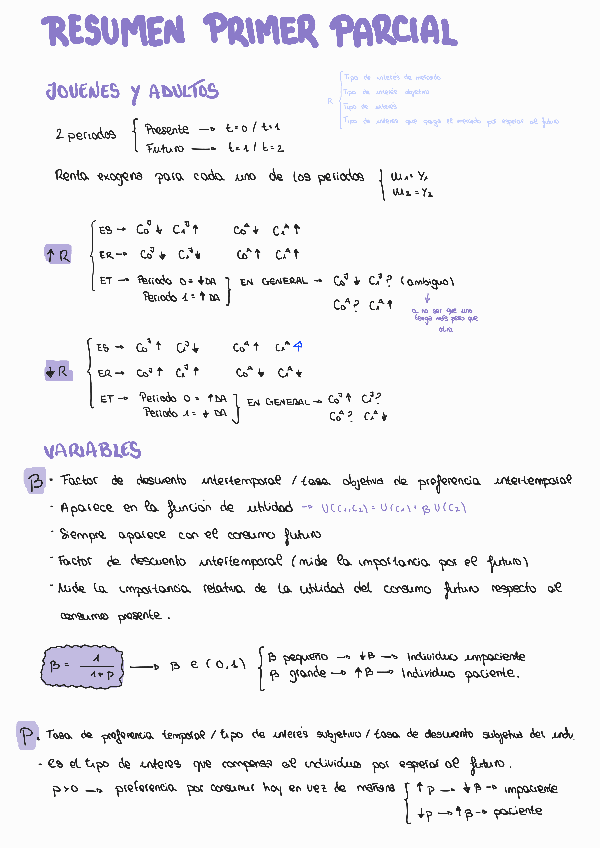 RESUMEN PRIMER PARCIAL
JOVENES Y ADULTOS
R { Tipo de interés de mercado
Tipo de interés objetivo
Tipo de interés
Tipo de interes que paga el mercado por esperar al futuro
2 periodos { Presente → t=0 / t=1
Futuro → t=1 / t=2
Renta exogena para cada uno de los periodos { m₁ = Y₁
m₂ = Y₂
↑ R
ES → C₀ᴶ ↓ C₁ᴶ ↑ C₀ᴬ ↓ C₁ᴬ ↑
ER → C₀ᴶ ↓ C₁ᴶ ↓ C₀ᴬ ↑ C₁ᴬ ↑
ET → Periodo 0 = ↓DA ] EN GENERAL → C₀ᴶ ↓ C₁ᴶ ? (ambiguo)
Periodo 1 = ↑DA C₀ᴬ ? C₁ᴬ ↑
a no ser que uno
tenga más peso que
otro
↓ R
ES → C₀ᴶ ↑ C₁ᴶ ↓ C₀ᴬ ↑ C₁ᴬ ↑
ER → C₀ᴶ ↑ C₁ᴶ ↑ C₀ᴬ ↓ C₁ᴬ ↓
ET → Periodo 0 = ↑DA ] EN GENERAL → C₀ᴶ ↑ C₁ᴶ ?
Periodo 1 = ↓DA C₀ᴬ ? C₁ᴬ ↓
VARIABLES
β · Factor de descuento intertemporal / tasa objetiva de preferencia intertemporal
- Aparece en la función de utilidad → U(C₁,C₂) = U(C₁) + β U(C₂)
- Siempre aparece con el consumo futuro
- Factor de descuento intertemporal (mide la importancia por el futuro)
- Mide la importancia relativa de la utilidad del consumo futuro respecto al
consumo presente.
β = 1 / 1+ρ → β ∈ (0,1) { β pequeño → ↓β → Individuo impaciente
β grande → ↑β → Individuo paciente.
ρ . Tasa de preferencia temporal / tipo de interés subjetivo / tasa de descuento subjetiva del indv.
- es el tipo de interes que compensa al individuo por esperar al futuro.
ρ>0 → preferencia por consumir hoy en vez de mañana { ↑ρ → ↓β → impaciente
↓ρ → ↑β → paciente